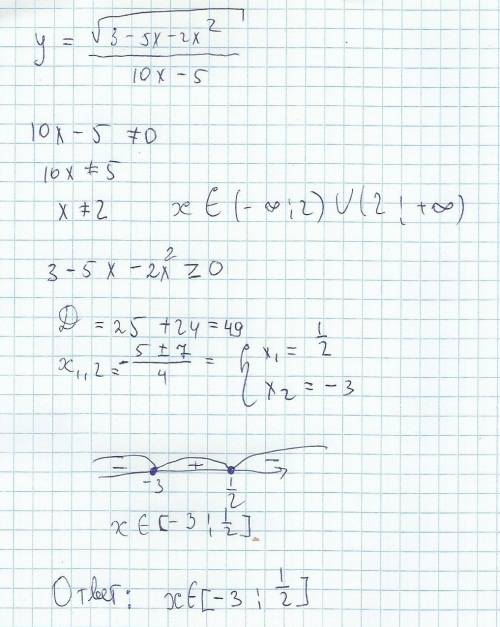 y = √(3 - 5x - 2x²) / (10x - 5)
10x - 5 ≠ 0
10x ≠ 5
x ≠ 2 x ∈ (-∞; 2) ∪ (2; +∞)
3 - 5x - 2x² ≥ 0
D = 25 + 24 = 49
x₁,₂ = (-5 ± 7) / 4 = { x₁ = 1/2
x₂ = -3
- + -
-3 1/2
x ∈ [-3; 1/2]
Ответ: x ∈ [-3; 1/2]